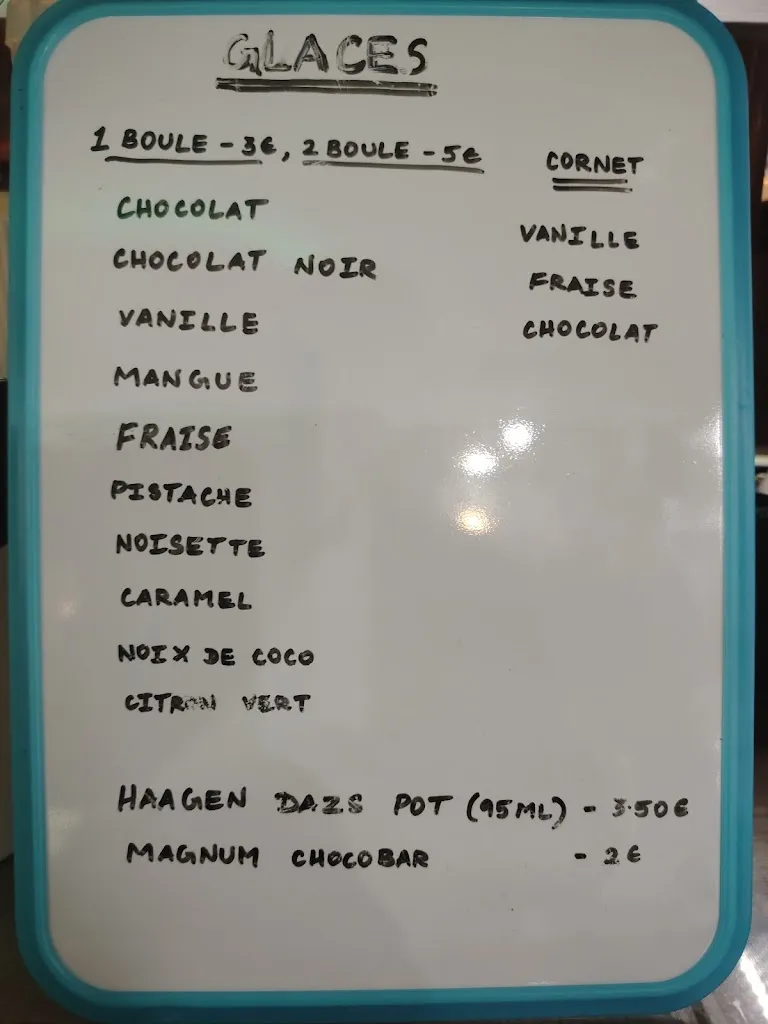 GLACES
1 BOULE - 3€, 2 BOULE - 5€
CHOCOLAT
CHOCOLAT NOIR
VANILLE
MANGUE
FRAISE
PISTACHE
NOISETTE
CARAMEL
NOIX DE COCO
CITRON VERT
CORNET
VANILLE
FRAISE
CHOCOLAT
HAAGEN DAZS POT (95ML) - 3.50€
MAGNUM CHOCOBAR - 2€